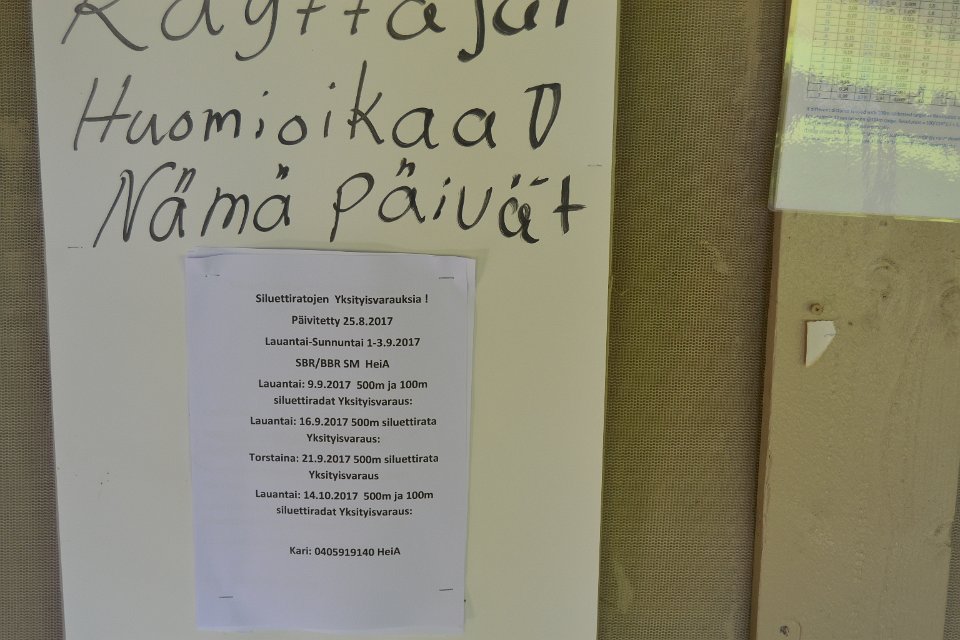 Käyttäjät
Huomioikaa
Nämä päivät
Siluettiratojen Yksityisvarauksia !
Päivitetty 25.8.2017
Lauantai-Sunnuntai 1-3.9.2017
SBR/BBR SM HeiA
Lauantai: 9.9.2017 500m ja 100m
siluettiradat Yksityisvaraus:
Lauantai: 16.9.2017 500m siluettirata
Yksityisvaraus:
Torstaina: 21.9.2017 500m siluettirata
Yksityisvaraus
Lauantai: 14.10.2017 500m ja 100m
siluettiradat Yksityisvaraus:
Kari: 0405919140 HeiA